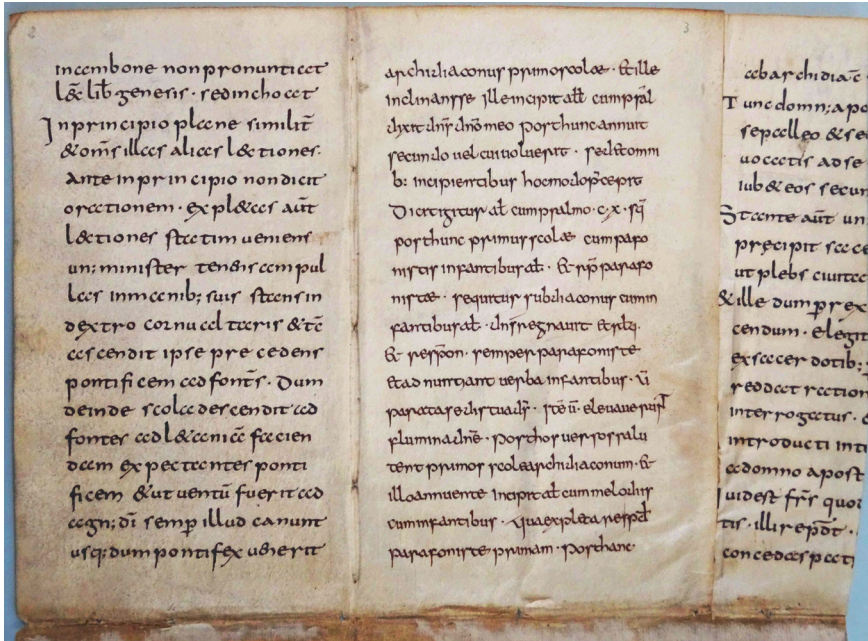 in ambone non pronuntiat
l& lib̄ genesis · sed inchoat
In principio plane similit̄
& om̄s illas alias l&tiones.
Ante in principio non dicit
orationem · expl&as aūt
l&tiones statim veniens
un; minister
las in manib; suis stans in
dextro cornu altaris & tē
ascendit ipse precedens
pontificem ad fontes. Dum
deinde scola descendit ad
fontes ad l&aniā facien
dam expectantes ponti
ficem & ut ventū fuerit ad
agn; dī semp̄ illud canunt
usq; dum pontifex venerit
archidiaconus primo scolae · Et ille
inclinans se ille incipit all̄ cum psal
dixit dn̄s dn̄o meo post hunc annuit
secundo vel cui voluerit · sed & omni
b; incipientibus hoc modo
Dicit igitur all̄ cum psalmo · c,x · sq̄
post hunc primus scolae cum parafo
nistis infantibus all̄ · & rsp̄ parafo
nistae · sequitur subdiaconus cum in
fantibus all̄ · dn̄s regnavit & rlq̄.
& respon · semper parafoniste
Et adnuntiant verba infantibus ·
parata sedis tua · elevaverunt
flumina dn̄e · Post hos versos salu
tent primos scole archidiaconum · &
illo annuente incipit all̄ cum melodiis
cum infantibus · Qua expleta respd̄
parafoniste primam · Post hanc
ab archidiac̄
Tunc domn; apo
s&
vocatis ad se
iub& eos secun
Stante aūt un
precipit
ut plebs
& ille dum
cendum · elegit
ex sacerdotib;
interrogatus ·
introducti
a domno apost
id est fr̄s quo
tis · illi